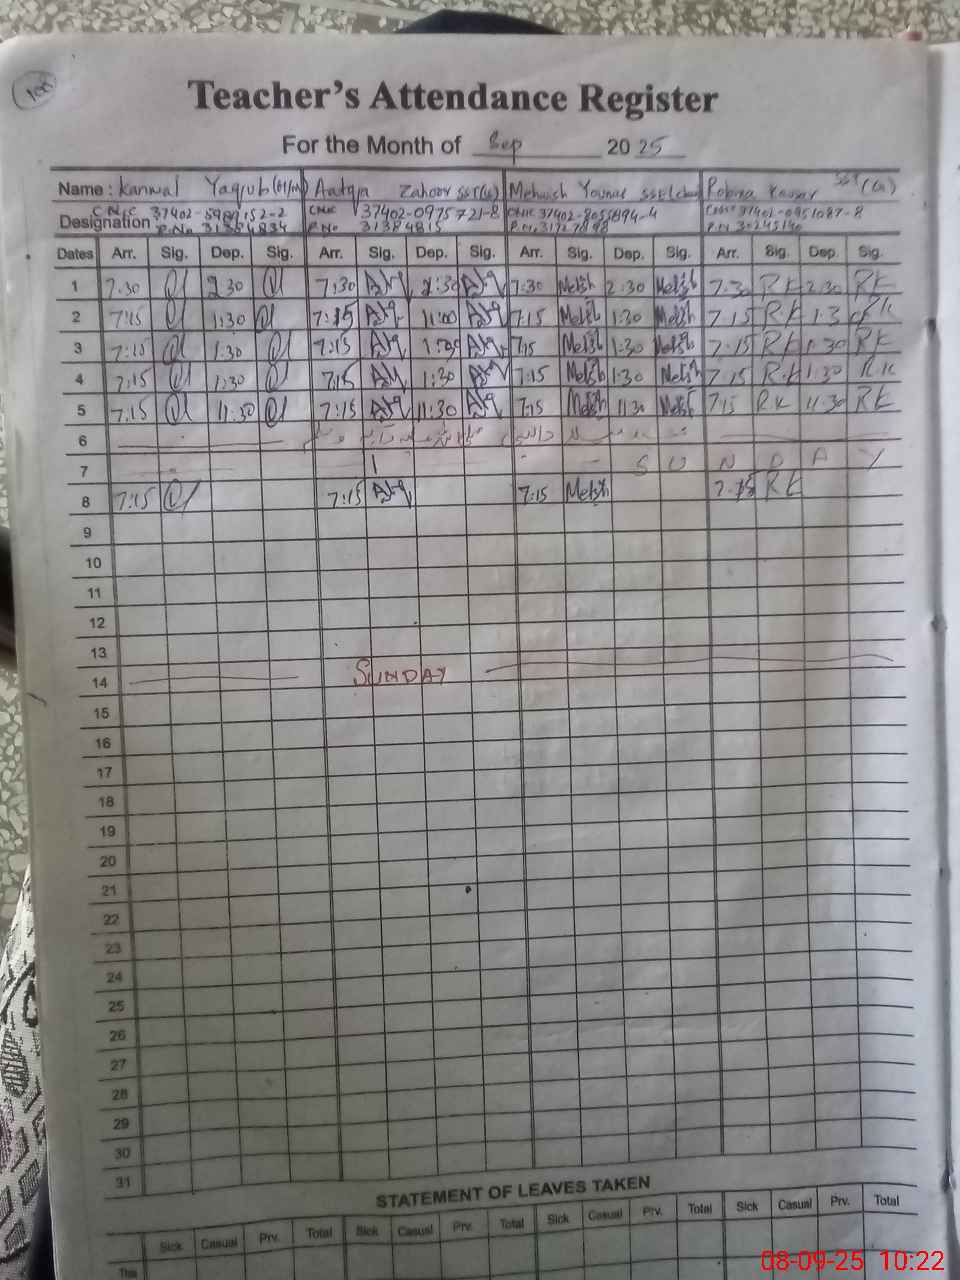 100
Teacher's Attendance Register
For the Month of Sep 20 25
Name: Kanwal Yaqub Aatqa Zahoor SST(G) Mehwish Younas SSE Robina Kausar SST (G)
Designation CNIC 37402- 152-2 CNIC 37402-0975721-8 CNIC 37402-8055894-4 CNIC 37402-0951087-8
P.No 31384834 P.No 31384815 P.N. P.N 30245190
Dates Arr. Sig. Dep. Sig. Arr. Sig. Dep. Sig. Arr. Sig. Dep. Sig. Arr. Sig. Dep. Sig.
1 7:30 2:30 7:30 2:30 7:30 2:30 7:30 RK 2:30 RK
2 7:15 1:30 7:15 11:00 7:15 1:30 7:15 R.K 1:3 RK
3 7:15 1:30 7:15 1:30 7:15 1:30 7:15 RK 1:30 RK
4 7:15 1:30 7:15 1:30 7:15 1:30 7:15 R.K 1:30 R.K
5 7:15 11:30 7:15 11:30 7:15 11:30 7:15 R.K 11:30 RK
6
7 SUNDAY
8 7:15 7:15 7:15 7:15 RK
9
10
11
12
13
14 SUNDAY
15
16
17
18
19
20
21
22
23
24
25
26
27
28
29
30
31
STATEMENT OF LEAVES TAKEN
Sick Casual Prv. Total Sick Casual Prv. Total Sick Casual Prv. Total Sick Casual Prv. Total
This
08-09-25 10:22